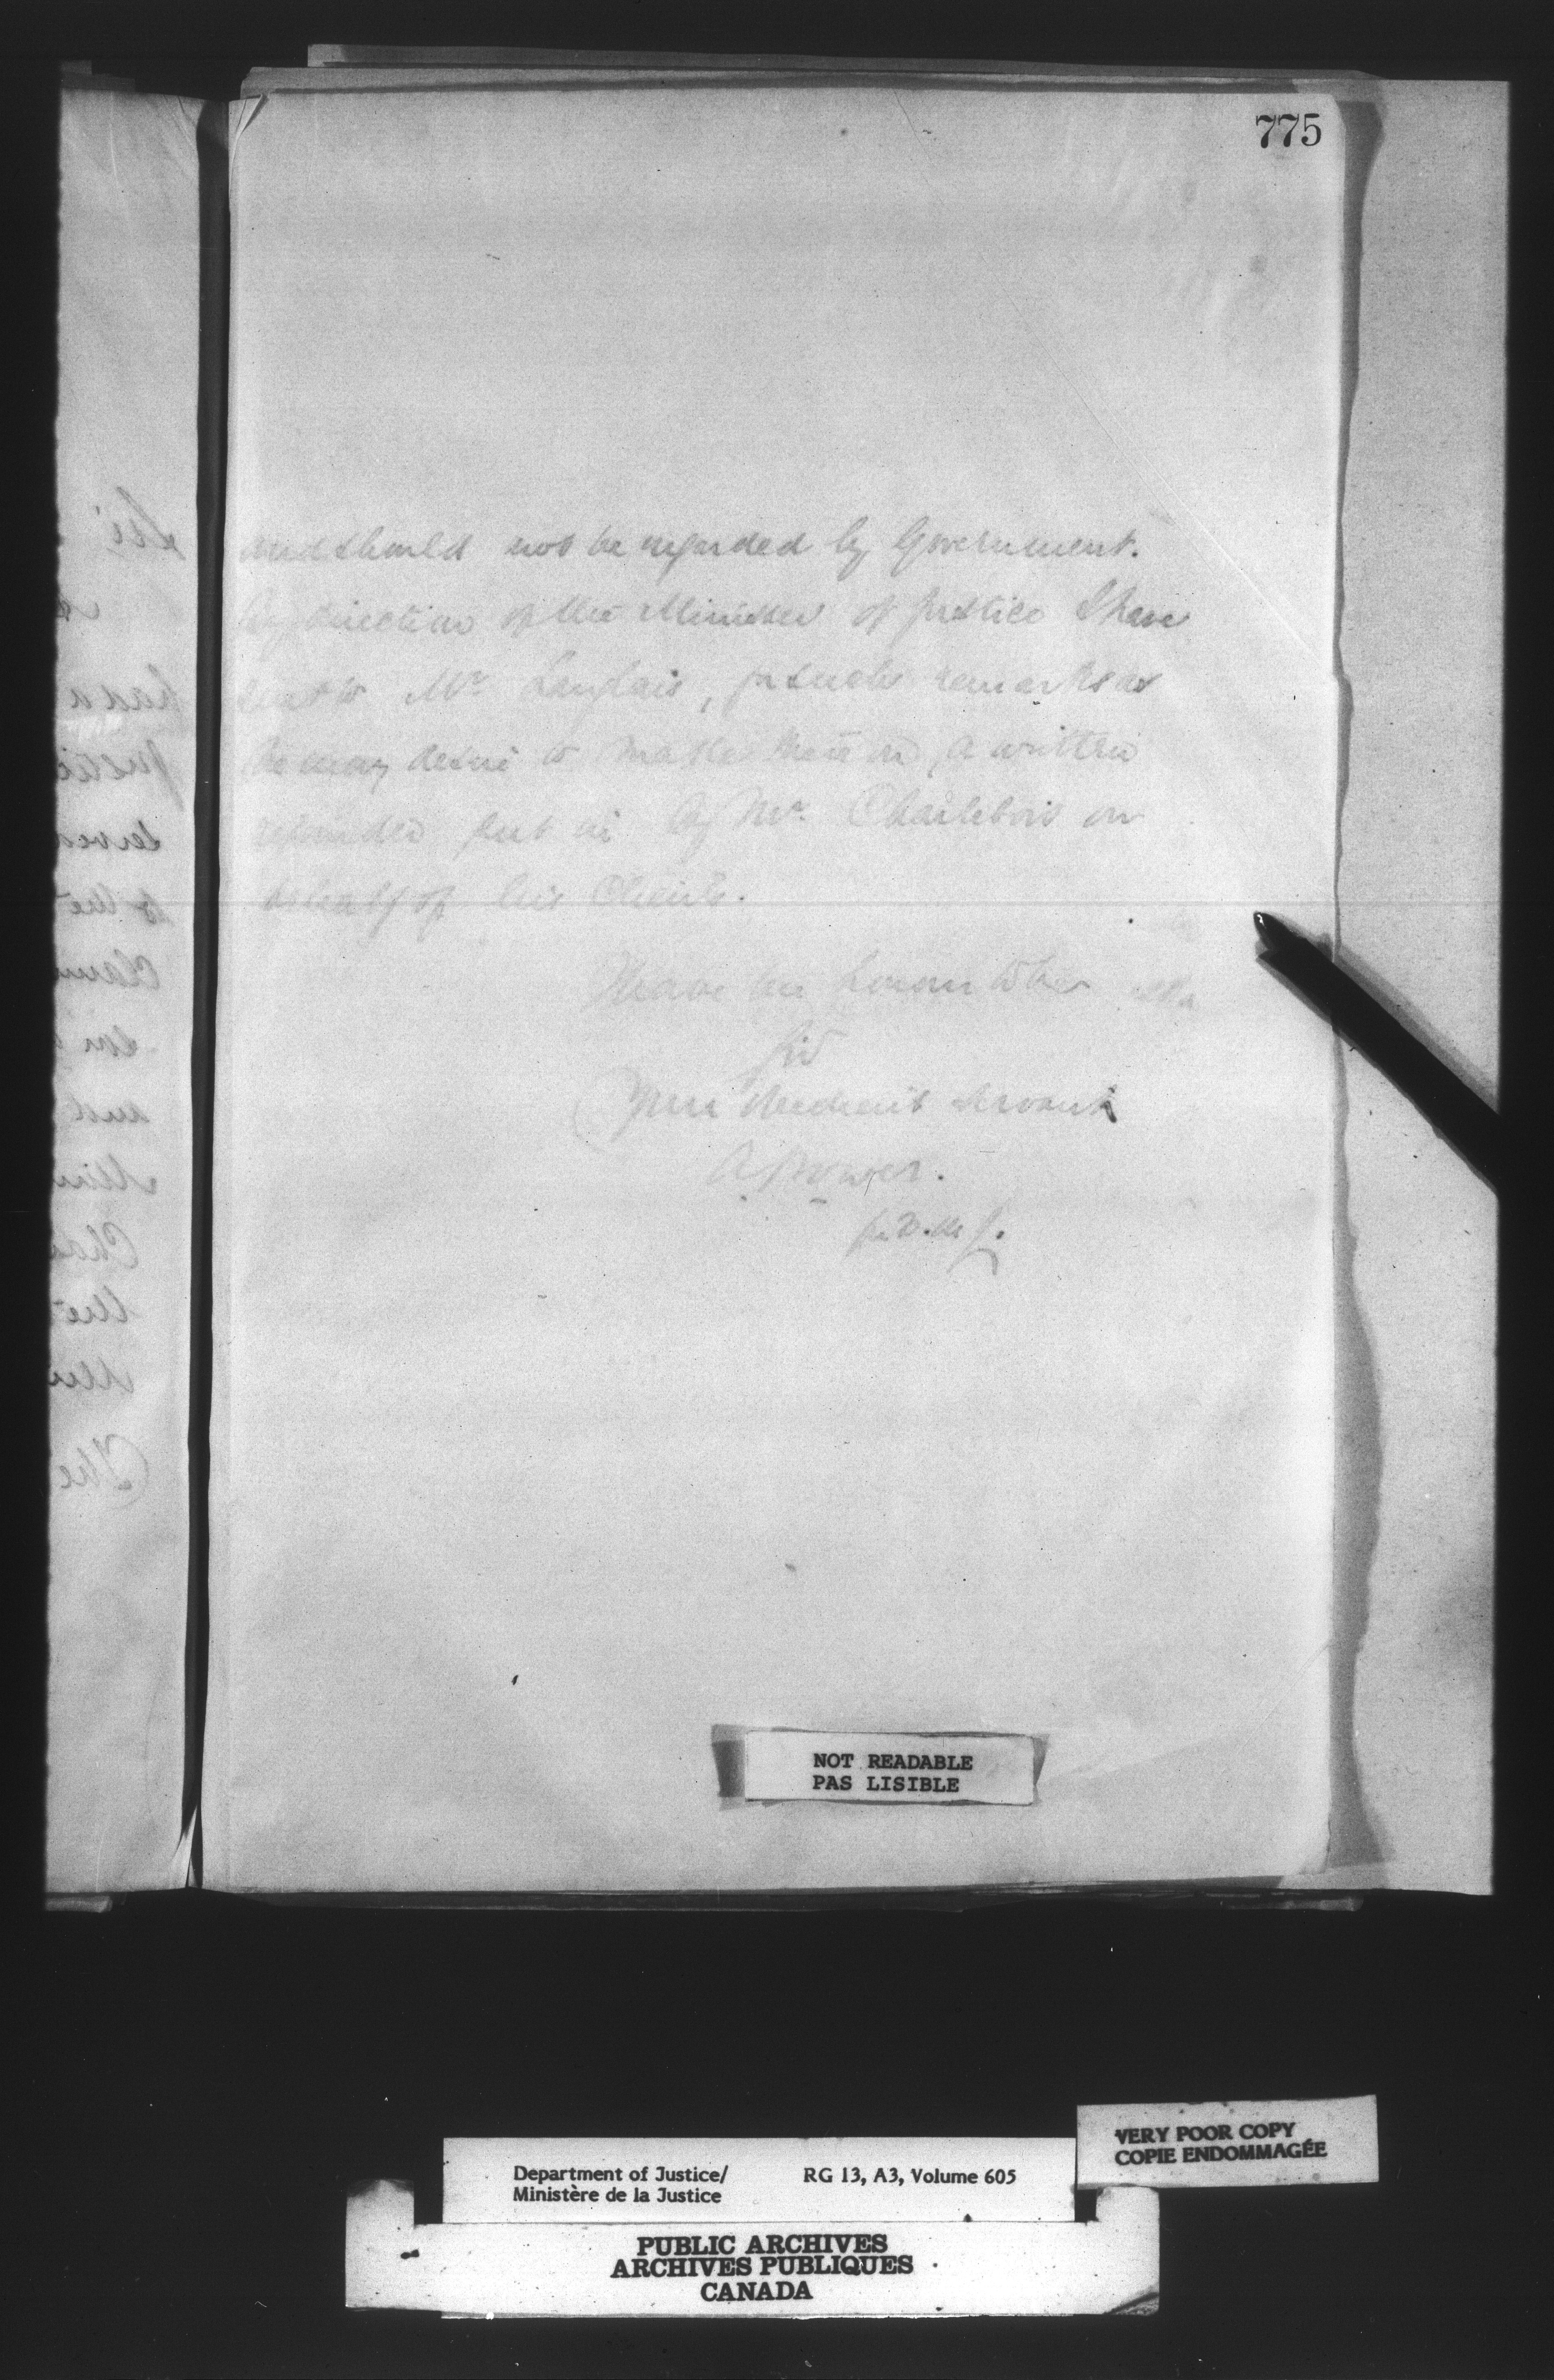 775
and should not be regarded by Government.
By direction of the Minister of Justice I have
sent to Mr Langlais, for such remarks as
he may desire to make thereon, a written
rejoinder put in by Mr. Charlebois on
behalf of his Clients.
I have the honour to be
Sir
Your obedient servant
A Power.
for D. M. J.
NOT READABLE
PAS LISIBLE
VERY POOR COPY
COPIE ENDOMMAGÉE
Department of Justice/ RG 13, A3, Volume 605
Ministère de la Justice
PUBLIC ARCHIVES
ARCHIVES PUBLIQUES
CANADA